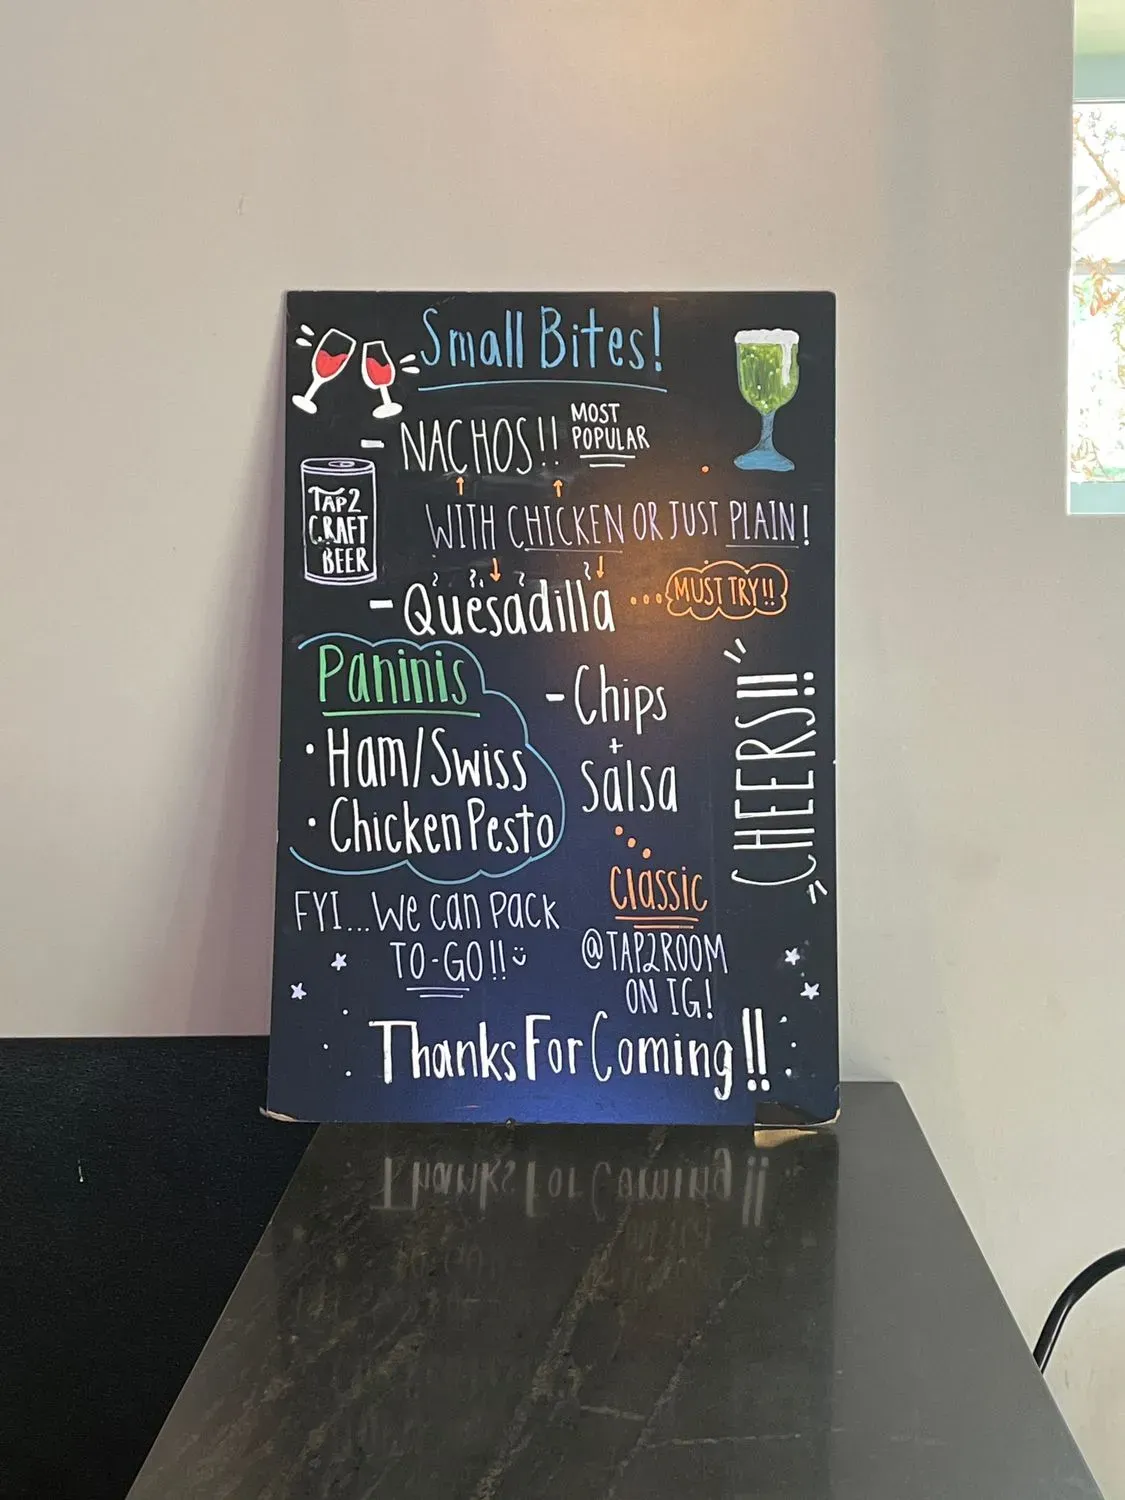 Small Bites!
- NACHOS!! MOST
POPULAR
TAP2
CRAFT
BEER
WITH CHICKEN OR JUST PLAIN!
- Quesadilla ... MUST TRY!!
Paninis
• Ham/Swiss
• Chicken Pesto
- Chips
+
Salsa
Classic
CHEERS!!
FYI... We can pack
TO-GO!!
@TAP2ROOM
ON IG!
Thanks For Coming!!